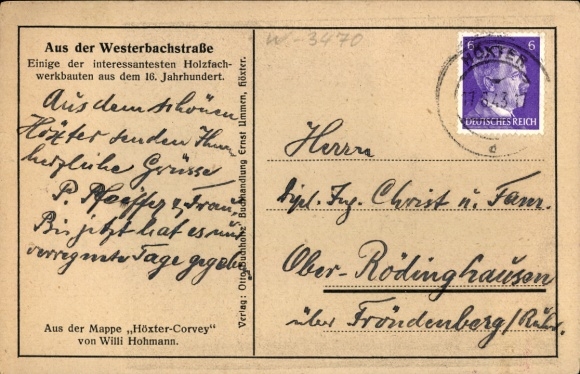 Aus der Westerbachstraße
Einige der interessantesten Holzfach-
werkbauten aus dem 16. Jahrhundert.
Aus dem schönen
Höxter senden Ihnen
herzliche Grüsse
P. Pfeiffer u. Frau.
Bis jetzt hat es nur
verregnete Tage gegeben.
Aus der Mappe „Höxter-Corvey"
von Willi Hohmann.
Verlag: Otto Buchholz' Buchhandlung Ernst Ummen, Höxter.
W.-3470
6 6
HÖXTER
DEUTSCHES REICH
c
Herrn
Dipl. Ing. Christ u. Fam.
Ober-Rödinghausen
über Fröndenberg/Ruhr.